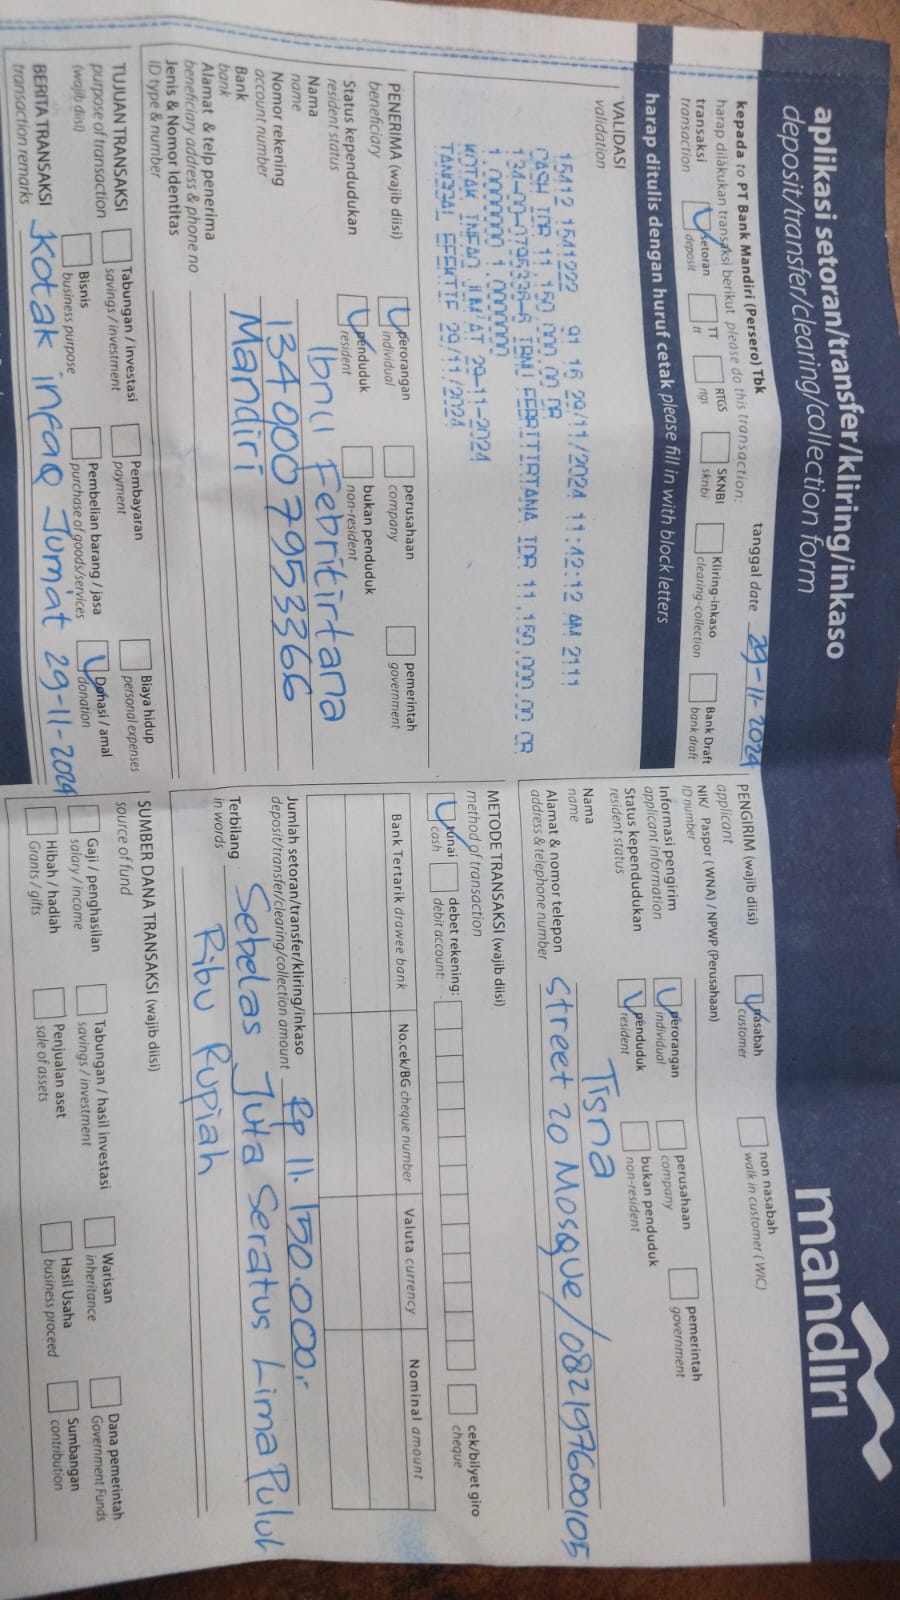 aplikasi setoran/transfer/kliring/inkaso
deposit/transfer/clearing/collection form
mandırı
kepada to PT Bank Mandiri (Persero) Tbk
tanggal date 29-11-2024
harap dilakukan transaksi berikut please do this transaction:
transaksi
transaction
setoran
deposit
TT
tt
RTGS
rtgs
SKNBI
sknbi
Kliring-inkaso
clearing-collection
Bank Draft
bank draft
harap ditulis dengan huruf cetak please fill in with block letters
VALIDASI
validation
15412 1541222 91 16 29/11/2024 11:42:12 AM 2111
CASH IDR 11,150,000.00 DR
134-00-0795336-6 IBNU FEBRITIRTANA IDR 11,150,000.00 CR
1.0000000 1.0000000
KOTAK INFAQ JUM'AT 29-11-2024
TANGGAL EFEKTIF 29/11/2024
PENERIMA (wajib diisi)
beneficiary
perorangan
individual
perusahaan
company
pemerintah
government
Status kependudukan
resident status
penduduk
resident
bukan penduduk
non-resident
Nama
name
Ibnu Febritirtana
Nomor rekening
account number
1340007953366
Bank
bank
Mandiri
Alamat & telp penerima
beneficiary address & phone no
Jenis & Nomor Identitas
ID type & number
TUJUAN TRANSAKSI
purpose of transaction
(wajib diisi)
Tabungan / Investasi
savings / investment
Pembayaran
payment
Biaya hidup
personal expenses
Bisnis
business purpose
Pembelian barang / jasa
purchase of goods/services
Donasi / amal
donation
BERITA TRANSAKSI
transaction remarks
Kotak infaq Jum'at 29-11-2024
PENGIRIM (wajib diisi)
applicant
nasabah
customer
non nasabah
walk in customer (WIC)
NIK/ Paspor (WNA) / NPWP (Perusahaan)
ID number
Informasi pengirim
applicant information
perorangan
individual
perusahaan
company
pemerintah
government
Status kependudukan
resident status
penduduk
resident
bukan penduduk
non-resident
Nama
name
Tisna
Alamat & nomor telepon
address & telephone number
Street 20 Mosque/082197600105
METODE TRANSAKSI (wajib diisi)
method of transaction
tunai
cash
debet rekening:
debit account:
cek/bilyet giro
cheque
Bank Tertarik drawee bank
No.cek/BG cheque number
Valuta currency
Nominal amount
Jumlah setoran/transfer/kliring/inkaso
deposit/transfer/clearing/collection amount
Rp 11.150.000,-
Terbilang
in words
Sebelas Juta Seratus Lima Puluh
Ribu Rupiah
SUMBER DANA TRANSAKSI (wajib diisi)
source of fund
Gaji / penghasilan
salary / income
Tabungan / hasil investasi
savings / investment
Warisan
inheritance
Dana pemerintah
Government Funds
Hibah / hadiah
Grants / gifts
Penjualan aset
sale of assets
Hasil Usaha
business proceed
Sumbangan
contribution